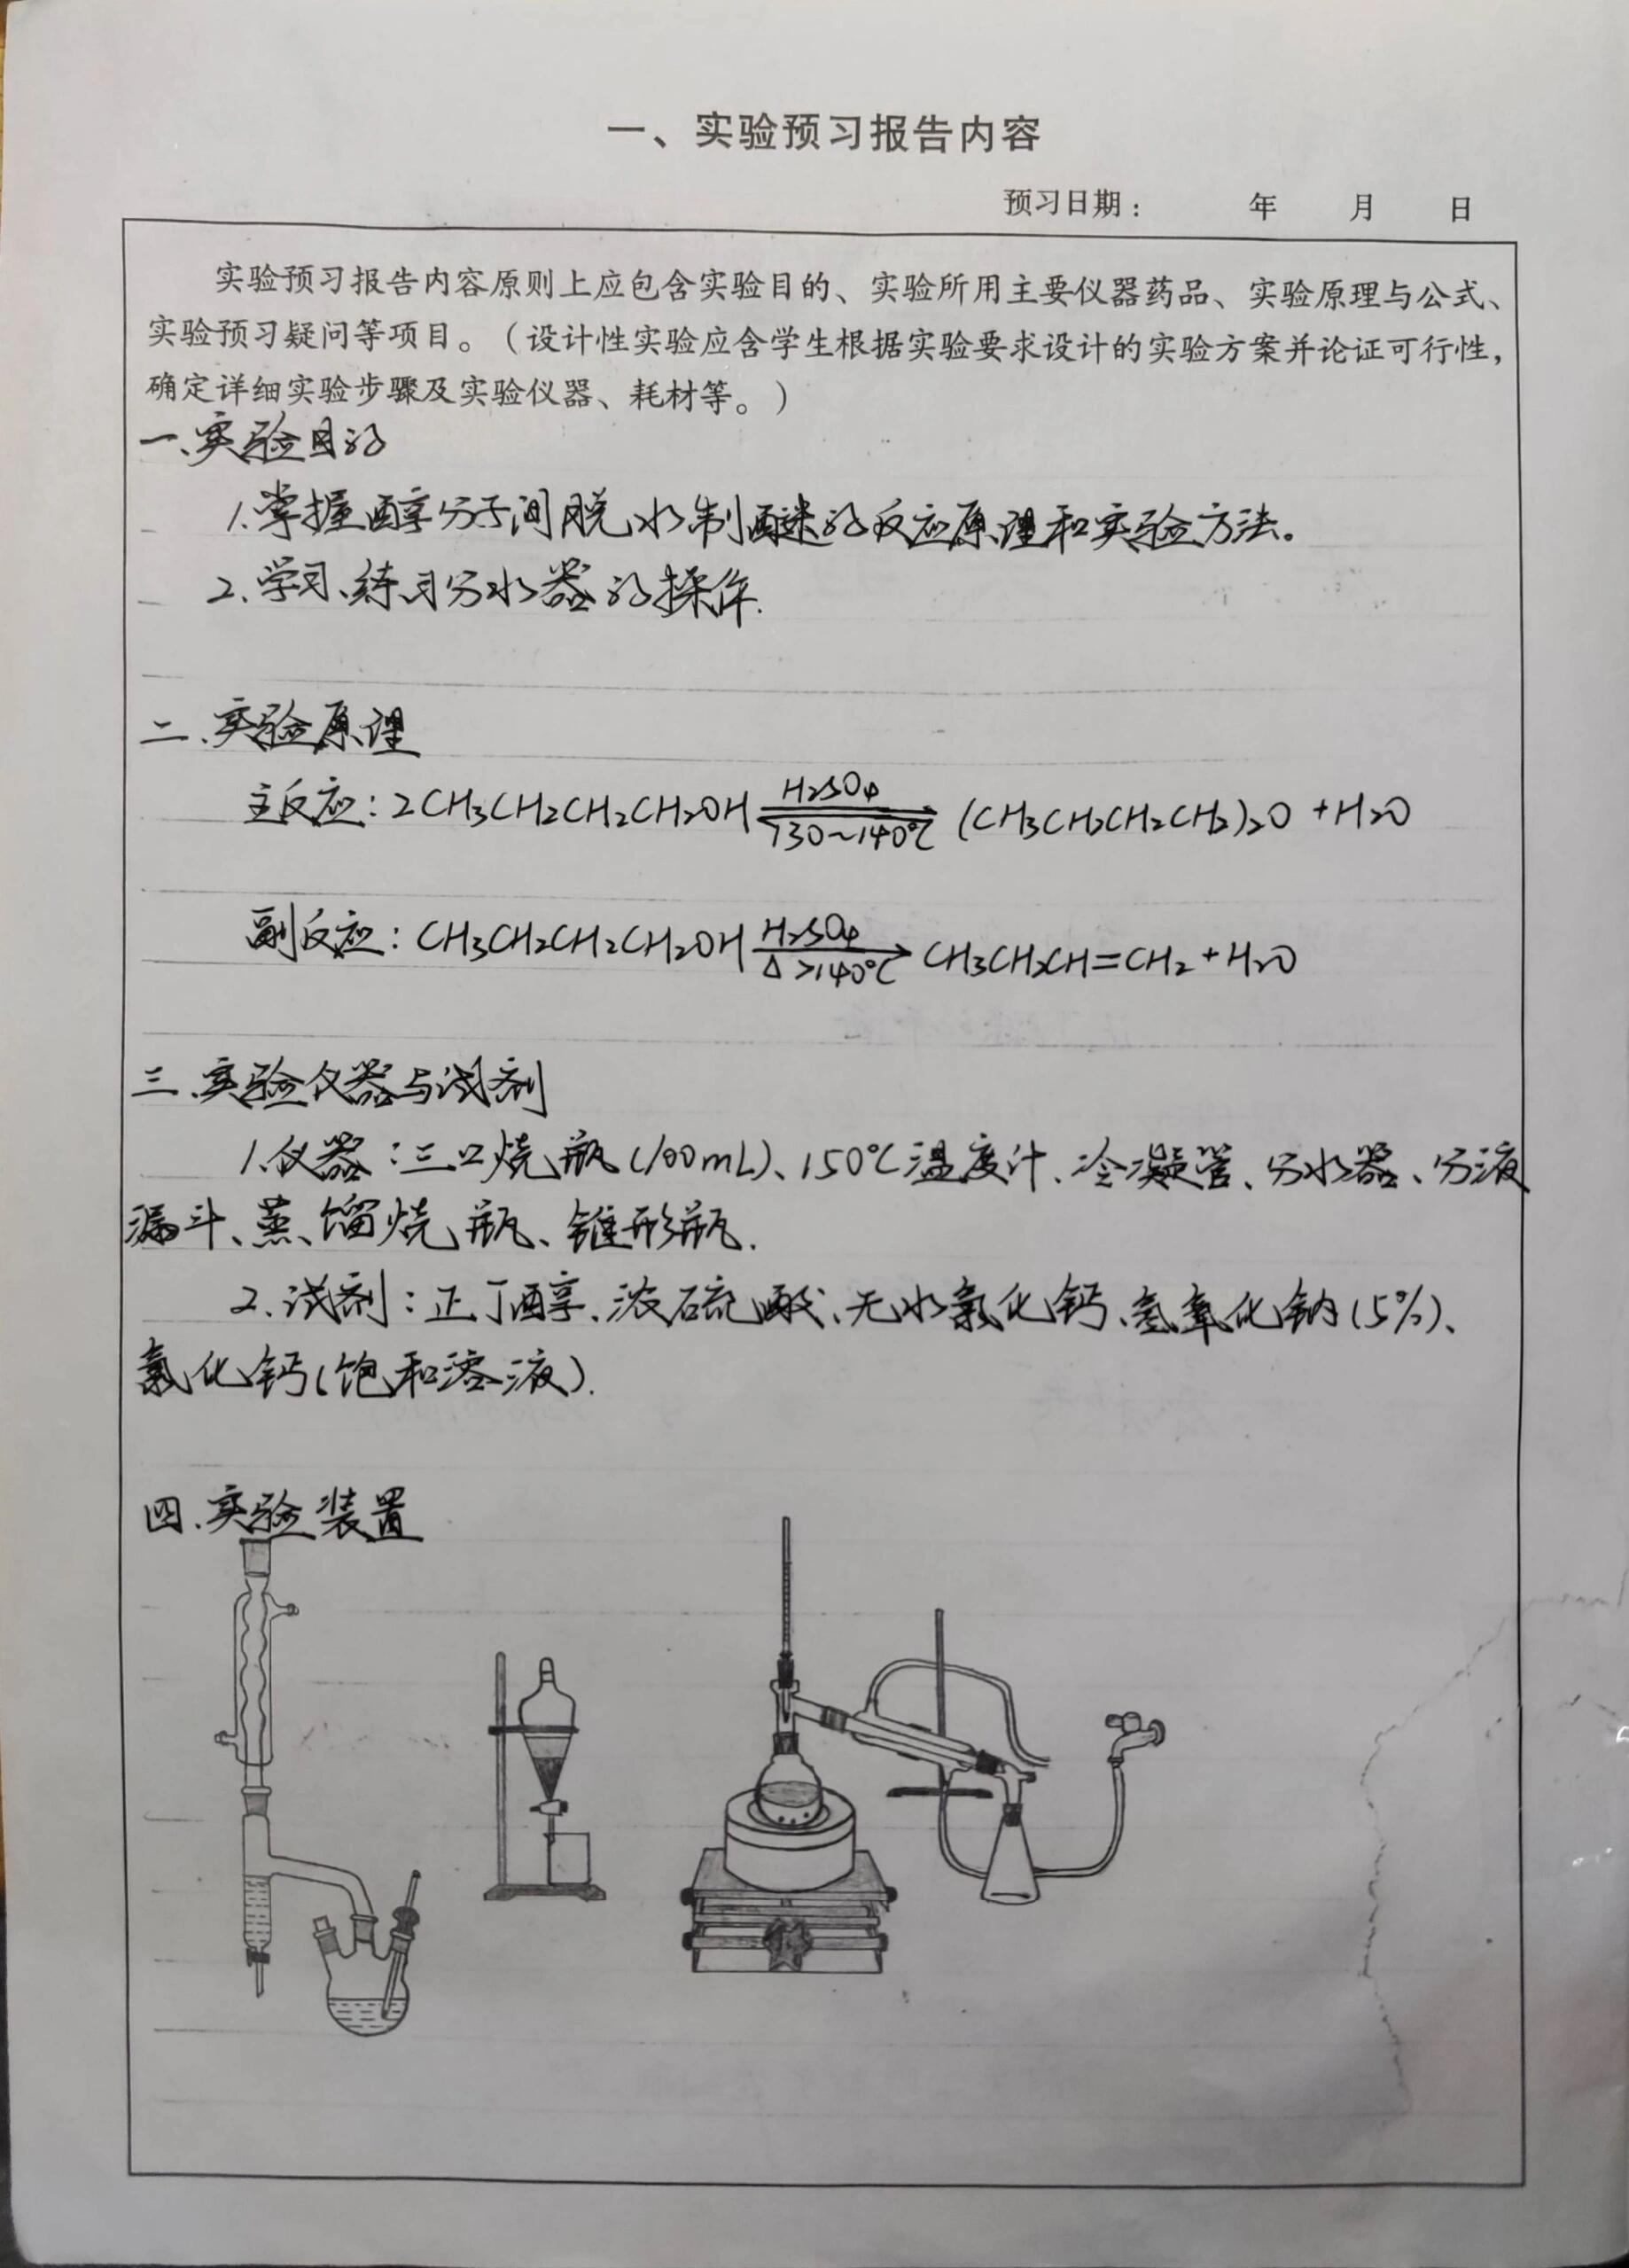 一、实验预习报告内容
预习日期： 年 月 日
实验预习报告内容原则上应包含实验目的、实验所用主要仪器药品、实验原理与公式、
实验预习疑问等项目。（设计性实验应含学生根据实验要求设计的实验方案并论证可行性，
确定详细实验步骤及实验仪器、耗材等。）
一、实验目的
1.掌握醇分子间脱水制醚的反应原理和实验方法。
2.学习、练习分水器的操作.
二.实验原理
主反应：2CH3CH2CH2CH2OH H2SO4 130~140℃ (CH3CH2CH2CH2)2O +H2O
副反应：CH3CH2CH2CH2OH H2SO4 Δ >140℃ CH3CH2CH=CH2+H2O
三.实验仪器与试剂
1.仪器：三口烧瓶(100mL)、150℃温度计、冷凝管、分水器、分液
漏斗、蒸馏烧瓶、锥形瓶.
2.试剂：正丁醇、浓硫酸、无水氯化钙、氢氧化钠(5%)、
氯化钙(饱和溶液).
四.实验装置